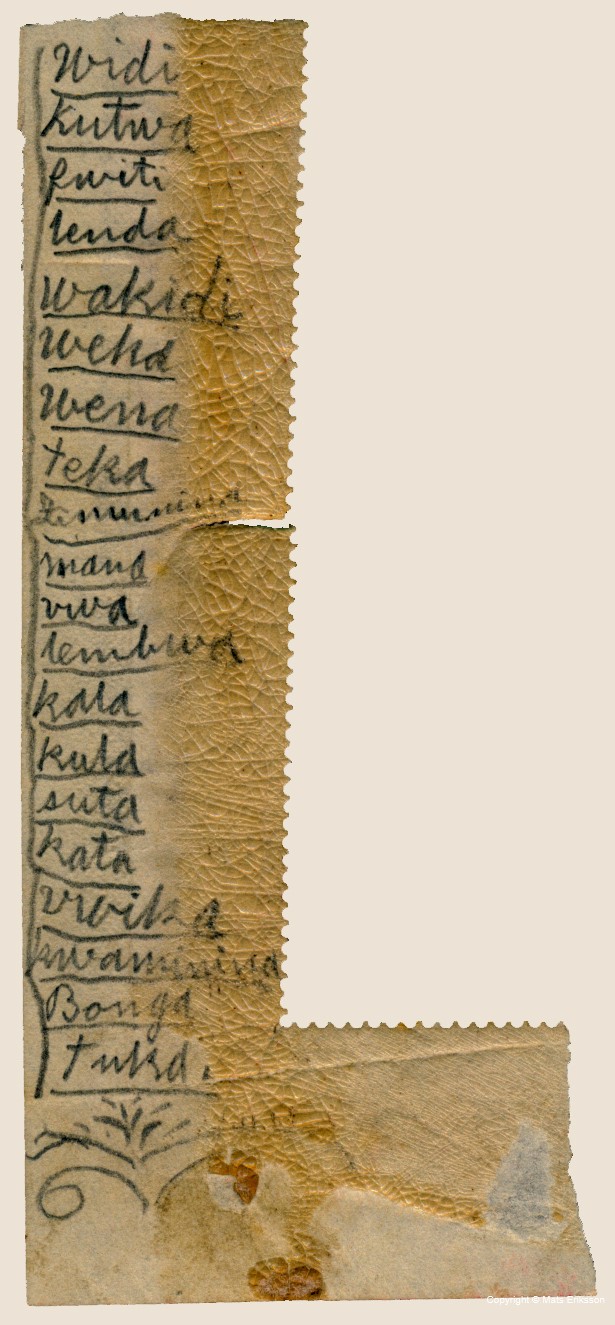 Widi
kutwa
fwiti
lenda
wakidi
weka
wena
teka
mana
viva
lembwa
kala
kula
suta
kata
vwika
kwaminina
Bonga
tuka.
Copyright © Mats Eriksson